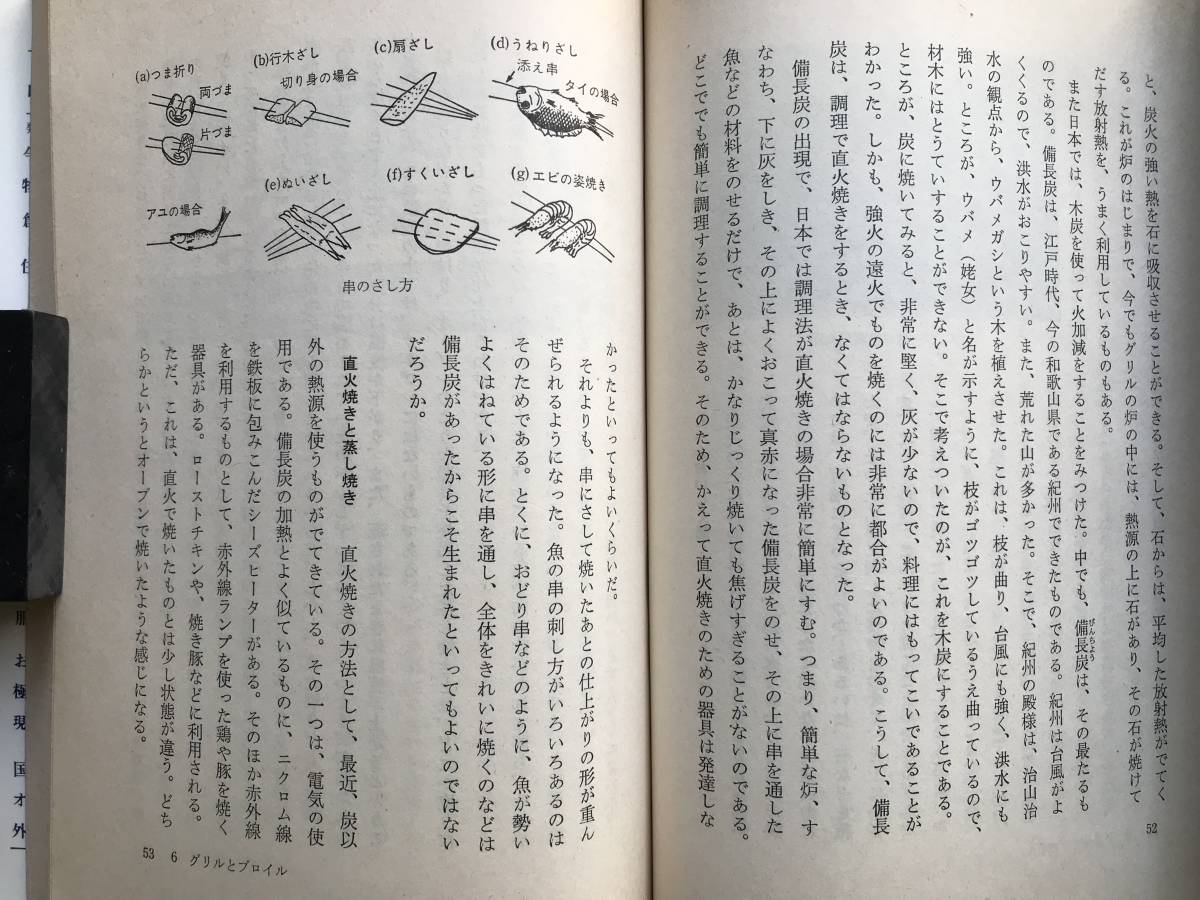 と、炭火の強い熱を石に吸収させることができる。そして、石からは、平均した放射熱がでてく
る。これが炉のはじまりで、今でもグリルの炉の中には、熱源の上に石があり、その石が焼けて
だす放射熱を、うまく利用しているものもある。
また日本では、木炭を使って火加減をすることをみつけた。中でも、備長炭は、その最たるも
びんちょう
のである。備長炭は、江戸時代、今の和歌山県である紀州でできたものである。紀州は台風がよ
くくるので、洪水がおこりやすい。また、荒れた山が多かった。そこで、紀州の殿様は、治山治
水の観点から、ウバメガシという木を植えさせた。これは、枝が曲り、台風にも強く、洪水にも
強い。ところが、ウバメ（姥女）と名が示すように、枝がゴツゴツしているうえ曲っているので、
材木にはとうていすることができない。そこで考えついたのが、これを木炭にすることである。
ところが、炭に焼いてみると、非常に堅く、灰が少ないので、料理にはもってこいであることが
わかった。しかも、強火の遠火でものを焼くのには非常に都合がよいのである。こうして、備長
炭は、調理で直火焼きをするとき、なくてはならないものとなった。
備長炭の出現で、日本では調理法が直火焼きの場合非常に簡単にすむ。つまり、簡単な炉、す
なわち、下に灰をしき、その上によくおこって真赤になった備長炭をのせ、その上に串を通した
魚などの材料をのせるだけで、あとは、かなりじっくり焼いても焦げすぎることがないのである。
どこででも簡単に調理することができる。そのため、かえって直火焼きのための器具は発達しな
52
(a)つま折り
両づま
片づま
(b)行木ざし
切り身の場合
(c)扇ざし
(d)うねりざし
添え串
タイの場合
アユの場合
(e)ぬいざし
(f)すくいざし
(g)エビの姿焼き
串のさし方
かったといってもよいくらいだ。
それよりも、串にさして焼いたあとの仕上がりの形が重ん
ぜられるようになった。魚の串の刺し方がいろいろあるのは
そのためである。とくに、おどり串などのように、魚が勢い
よくはねている形に串を通し、全体をきれいに焼くのなどは
備長炭があったからこそ生まれたといってもよいのではない
だろうか。
直火焼きと蒸し焼き　直火焼きの方法として、最近、炭以
外の熱源を使うものがでてきている。その一つは、電気の使
用である。備長炭の加熱とよく似ているものに、ニクロム線
を鉄板に包みこんだシーズヒーターがある。そのほか赤外線
を利用するものとして、赤外線ランプを使った鶏や豚を焼く
器具がある。ローストチキンや、焼き豚などに利用される。
ただ、これは、直火で焼いたものとは少し状態が違う。どち
らかというとオーブンで焼いたような感じになる。
53　6　グリルとブロイル